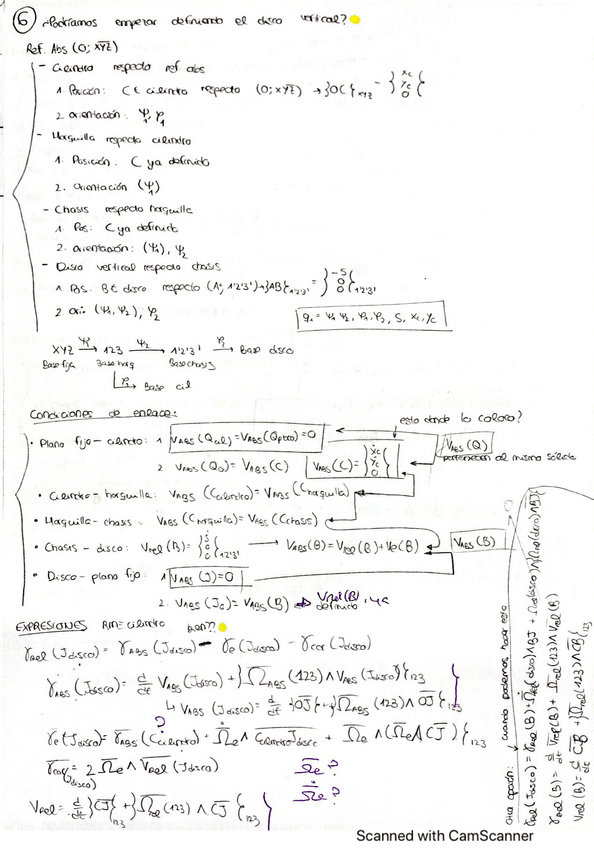 6 ¿Podríamos empezar definiendo el disco vertical?
Ref. Abs (O; XYZ)
- Cilindro respecto ref abs
1. Posición: C ∈ cilindro respecto (O; XYZ) → {OC}XYZ = {xc yc 0}
2. Orientación: Ψ1, φ1
- Horquilla respecto cilindro
1. Posición: C ya definido
2. Orientación (Ψ1)
- Chasis respecto horquilla
1. Pos: C ya definido
2. Orientación: (Ψ1), Ψ2
- Disco vertical respecto chasis
1. Pos. B ∈ disco respecto (A; 1'2'3') → {AB}1'2'3' = {-S 0 0}1'2'3'
2. Ori: (Ψ1, Ψ2), φ2
q = Ψ1 Ψ2, φ1, φ2, S, xc, yc
XYZ Ψ1→ 123 Ψ2→ 1'2'3' φ2→ Base disco
Base fija Base horq Base chasis
φ1→ Base cil
Condiciones de enlace:
esto donde lo coloco?
• Plano fijo - cilindro: 1. VABS(Qcil) = VABS(Qplano) = 0
VABS(Q)
pertenecen al mismo sólido
2. VABS(Q) = VABS(C) VABS(C) = {ẋc ẏc 0}
• Cilindro - horquilla: VABS(Ccilindro) = VABS(Chorquilla)
• Horquilla - chasis: VABS(Chorquilla) = VABS(Cchasis)
• Chasis - disco: Vrel(B) = {Ṡ 0 0}1'2'3' → VABS(B) = Vrel(B) + Ve(B)
VABS(B)
• Disco - plano fijo: 1. VABS(J) = 0
2. VABS(J) = VABS(B) → Vrel(B) definido
EXPRESIONES RME cilindro bien??
γrel(Jdisco) = γABS(Jdisco) - γe(Jdisco) - γcor(Jdisco)
γABS(Jdisco) = d/dt VABS(Jdisco) + {ΩABS(123) ∧ VABS(Jdisco)}123
↳ VABS(Jdisco) = d/dt {OJ} + {ΩABS(123) ∧ OJ}123
?
γe(Jdisco) = γABS(Ccilindro) + Ω̇e ∧ CcilindroJdisco + Ωe ∧ (Ωe ∧ CJ)}123
γcor(Jdisco) = 2 Ωe ∧ Vrel(Jdisco)
Ωe?
Ω̇e?
Vrel = d/dt {CJ}123 + {Ωrel(123) ∧ CJ}123
otra opción: cuando podemos hacer esto
γrel(Jdisco) = γrel(B) + Ω̇rel(disco) ∧ BJ + Ωrel(disco) ∧ (Ωrel(disco) ∧ BJ)
γrel(B) = d/dt Vrel(B) + Ωrel(123) ∧ Vrel(B)
Vrel(B) = d/dt CB + {Ωrel(123) ∧ CB}123
Scanned with CamScanner